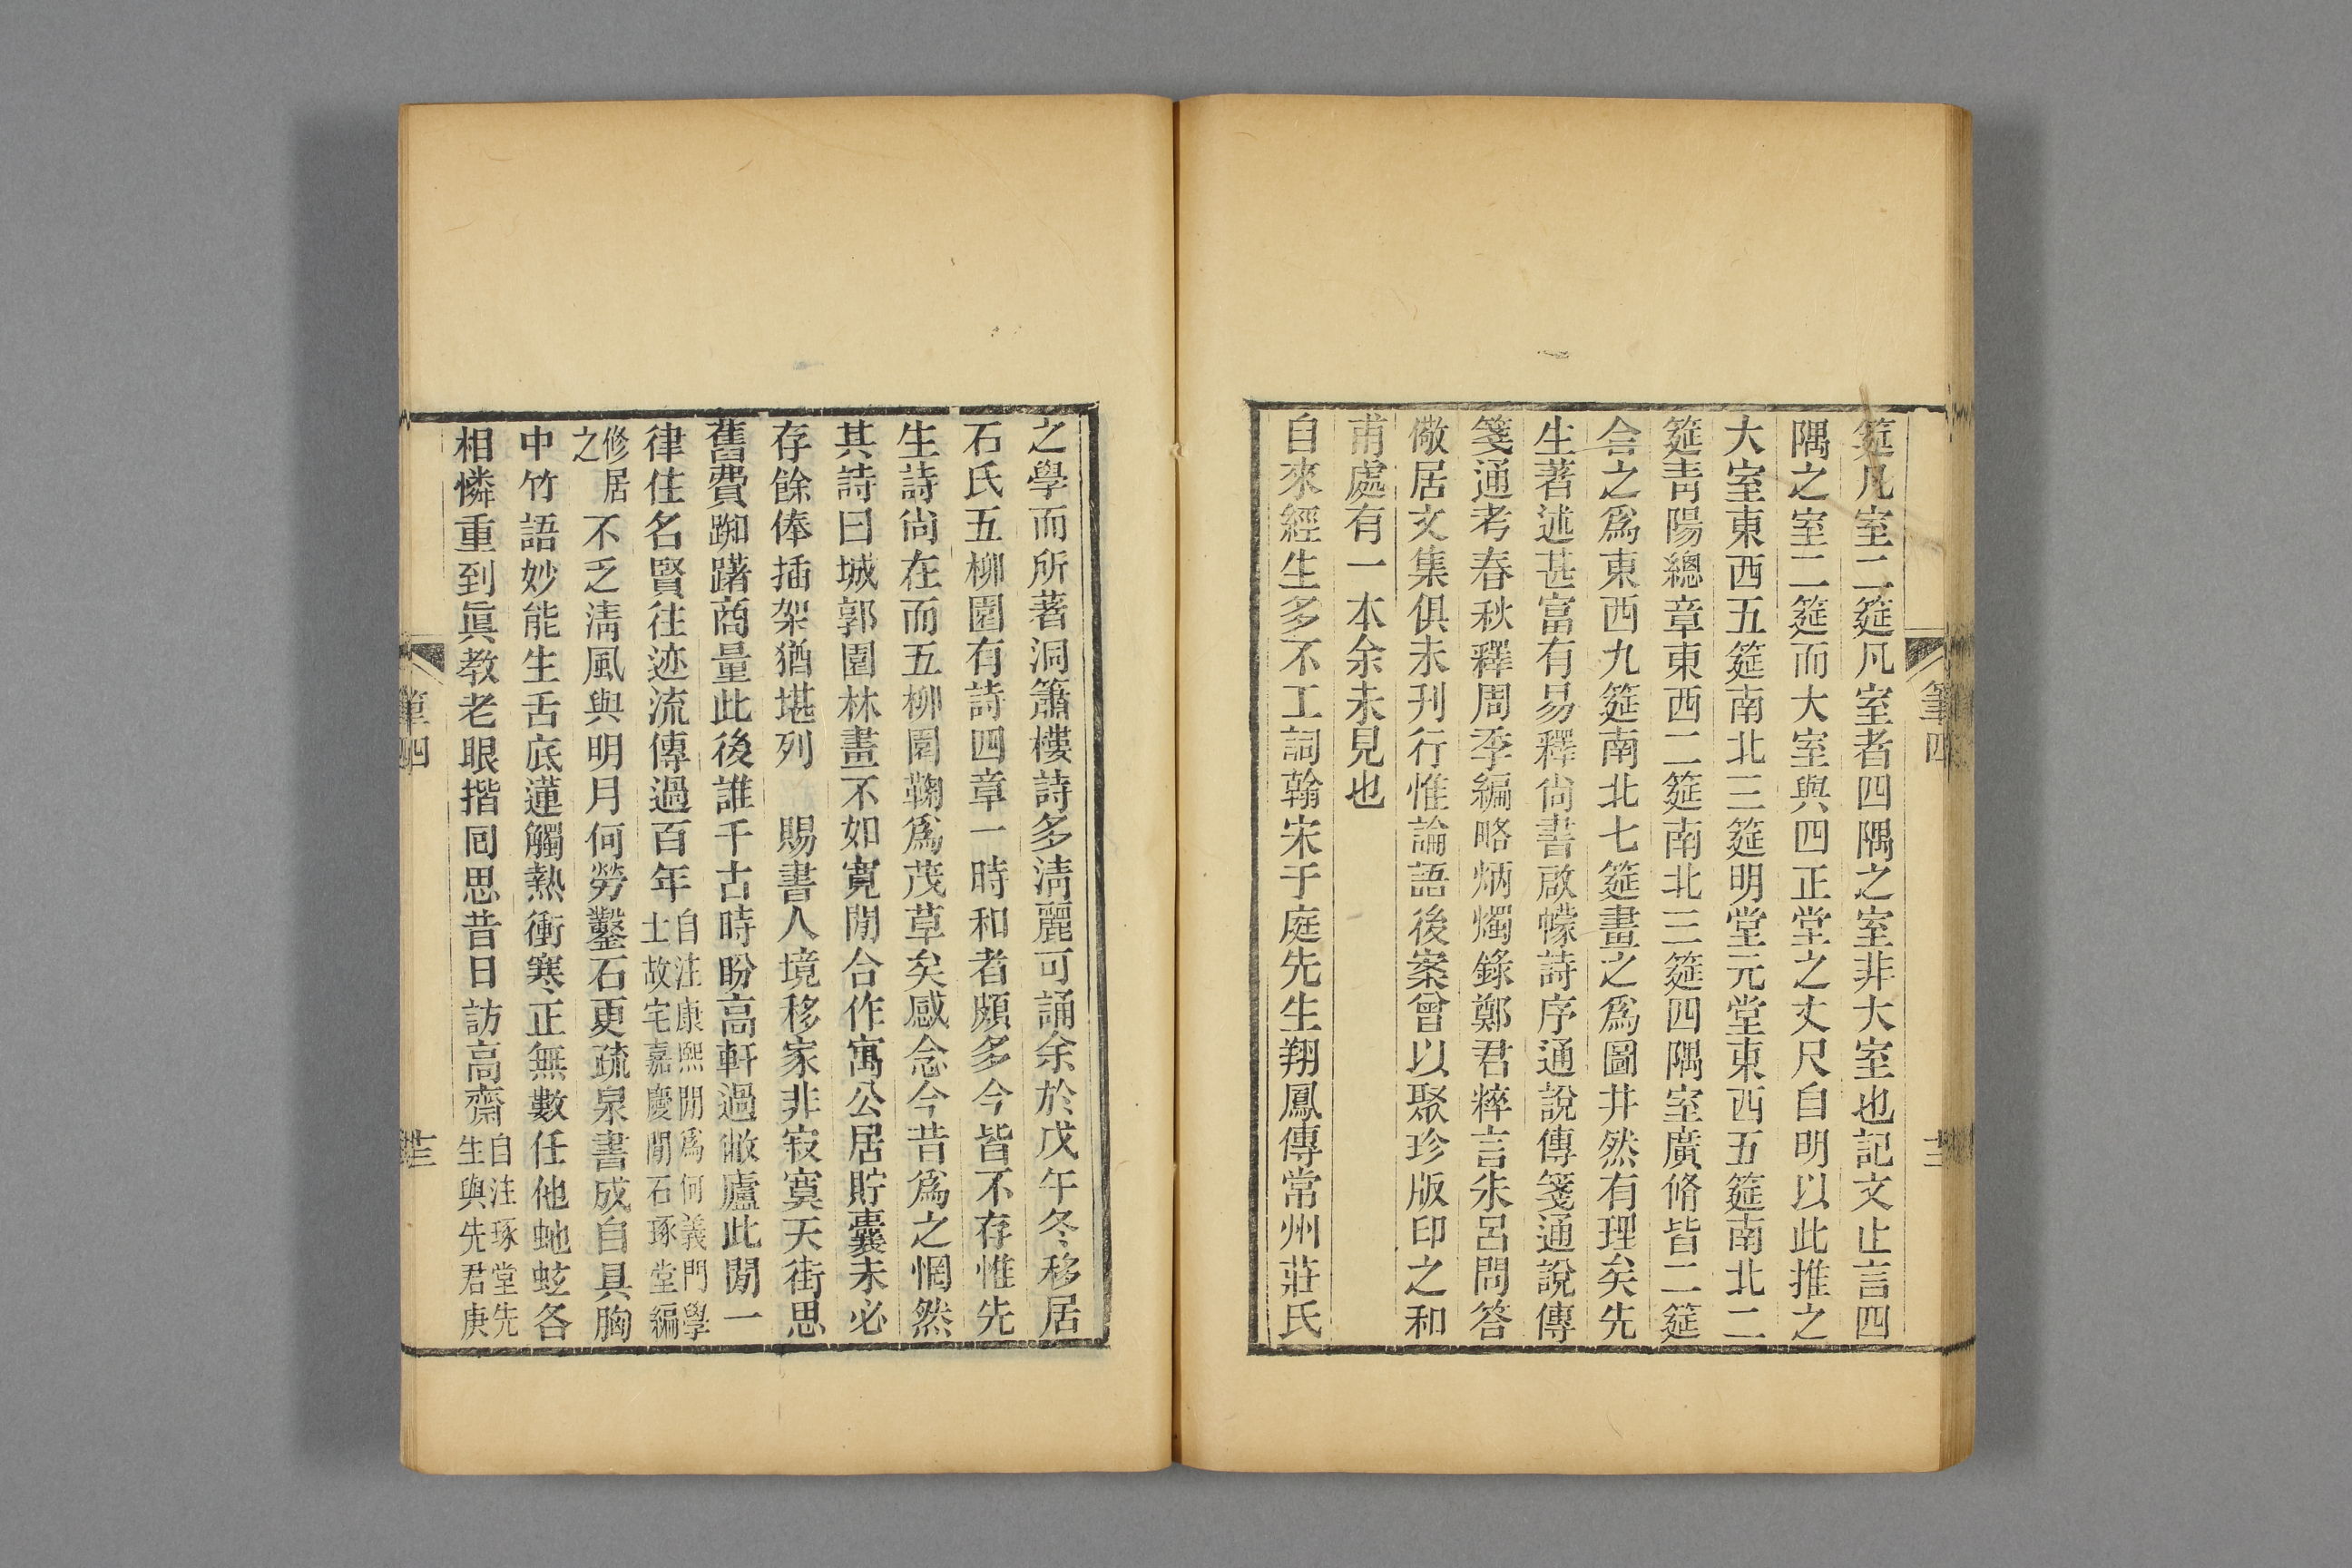 筵凡室二筵凡室者四隅之室非大室也記文止言四
隅之室二筵而大室與四正堂之丈尺自明以此推之
大室東西五筵南北三筵明堂元堂東西五筵南北二
筵青陽總章東西二筵南北三筵四隅室廣脩皆二筵
合之爲東西九筵南北七筵畫之爲圖井然有理矣先
生著述甚富有易釋尙書啟幪詩序通說傳箋通說傳
箋通考春秋釋周季編略炳燭錄鄭君粹言朱呂問答
儆居文集俱未刊行惟論語後案曾以聚珍版印之和
甫處有一本余未見也
自來經生多不工詞翰宋于庭先生翔鳳傳常州莊氏
筆四
之學而所著洞簫樓詩多淸麗可誦余於戊午冬移居
石氏五柳園有詩四章一時和者頗多今皆不存惟先
生詩尙在而五柳園鞠爲茂草矣感念今昔爲之惘然
其詩曰城郭園林畫不如寬閒合作寓公居貯囊未必
存餘俸插架猶堪列 賜書人境移家非寂寞天街思
舊費踟躇商量此後誰千古時盼高軒過敝廬此閒一
律住名賢往迹流傳過百年自注康熙閒爲何義門學
士故宅嘉慶閒石琢堂編
修居
之不乏淸風與明月何勞鑿石更疏泉書成自具胸
中竹語妙能生舌底蓮觸熱衝寒正無數任他虵蚿各
相憐重到眞教老眼揩囘思昔日訪高齋自注琢堂先
生與先君庚
筆四